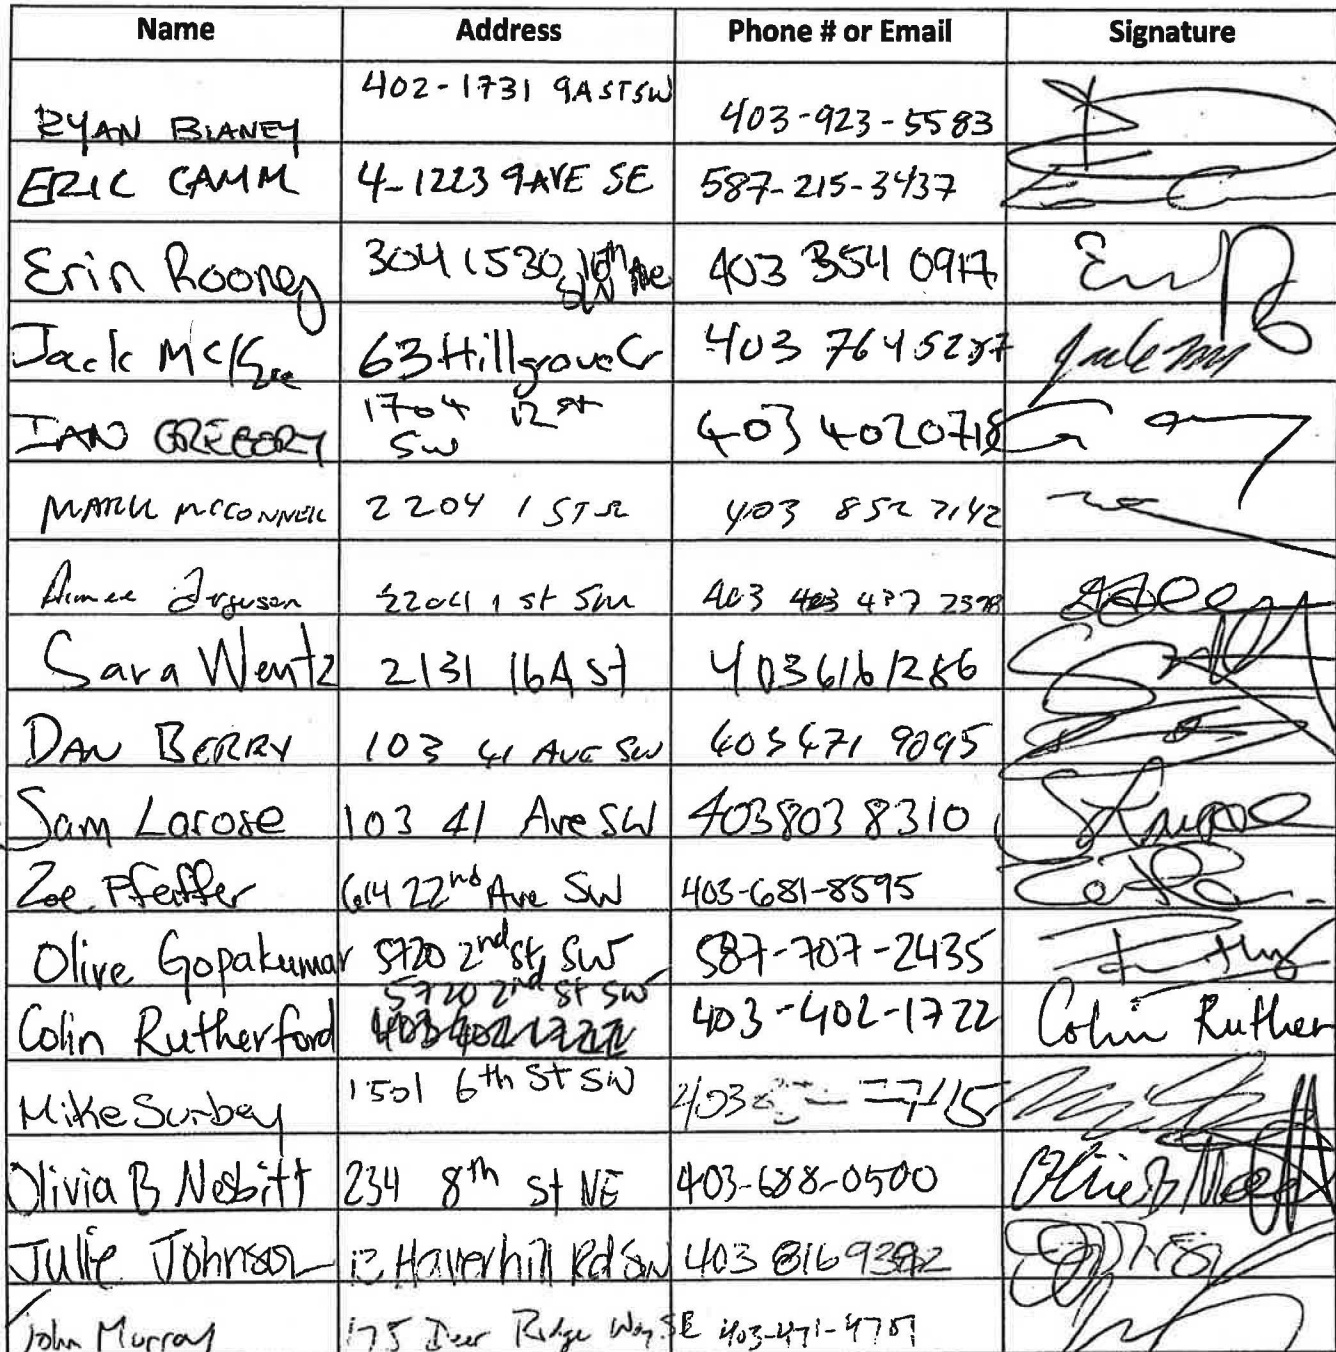 Name Address Phone # or Email Signature
RYAN BLANEY 402-1731 9A ST SW 403-923-5583
ERIC CAMM 4-1223 9AVE SE 587-215-3437
Erin Rooney 304 1530 16th Ave SW 403 354 0917
Jack McKee 63 Hillgrove Cr 403 764 5287
IAN GREGORY 1704 12 st SW 403 402 0718
MARK MCCONNELL 2204 1 ST 403 852 7142
Aimee Ferguson 2204 1 st SW 403 437
Sara Wentz 2131 16A St 403 616 1286
DAN BERRY 103 41 AVE SW 403 471 9095
Sam Larose 103 41 Ave SW 403 803 8310
Zoe Pfeiffer 614 22nd Ave SW 403-681-8595
Olive Gopakumar 5720 2nd St, SW 587-707-2435
Colin Rutherford 5720 2nd St SW 403-402-1722 Colin Ruther
Mike Surbey 1501 6th St SW 403 7715
Olivia B Nesbitt 234 8th St NE 403-688-0500
Julie Johnson Haverhill Rd SW 403 816
John Murray 175 Deer Ridge Way SE 403-471-4701